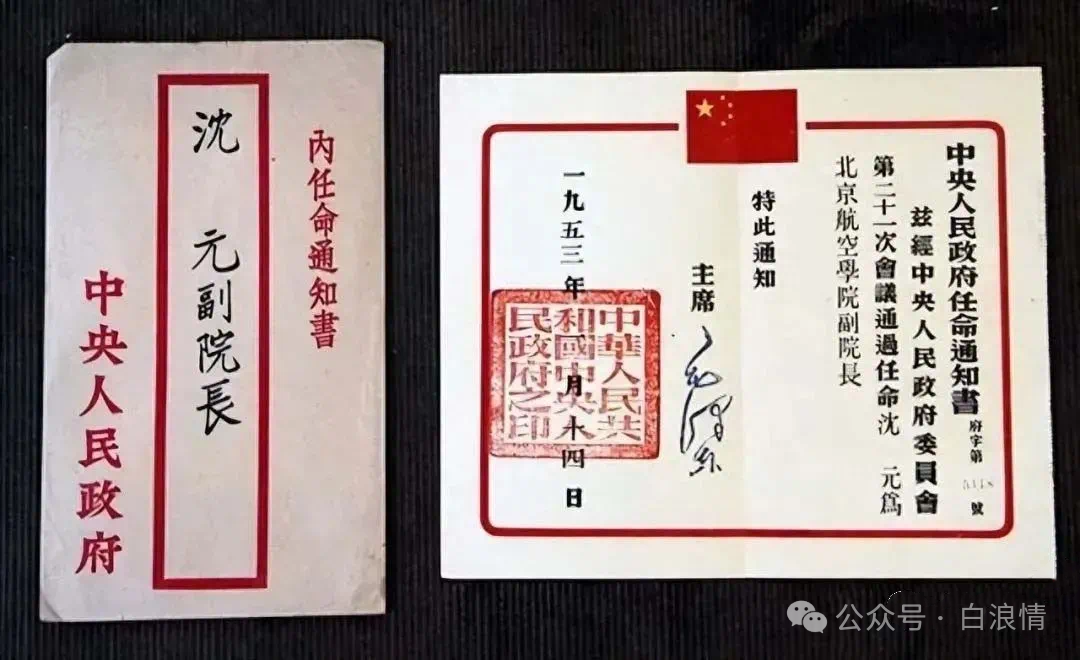 內任命通知書
沈 元副院長
中央人民政府
中央人民政府任命通知書
府字第 號
茲經中央人民政府委員會
第二十一次會議通過任命沈 元爲
北京航空學院副院長
特此通知
主席 毛泽东
一九五三年 月十四日
中華人民共
和國中央人
民政府之印
公众号 · 白浪情